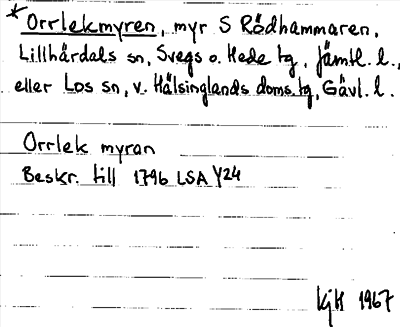 *Orrlekmyren, myr S Rödhammaren,
Lillhärdals sn, Svegs o. Hede tg, Jämtl. l.,
eller Los sn, v. Hälsinglands doms. tg, Gävl. l.
Orrlek myran
Beskr. till 1796 LSA Y24
KjH 1967